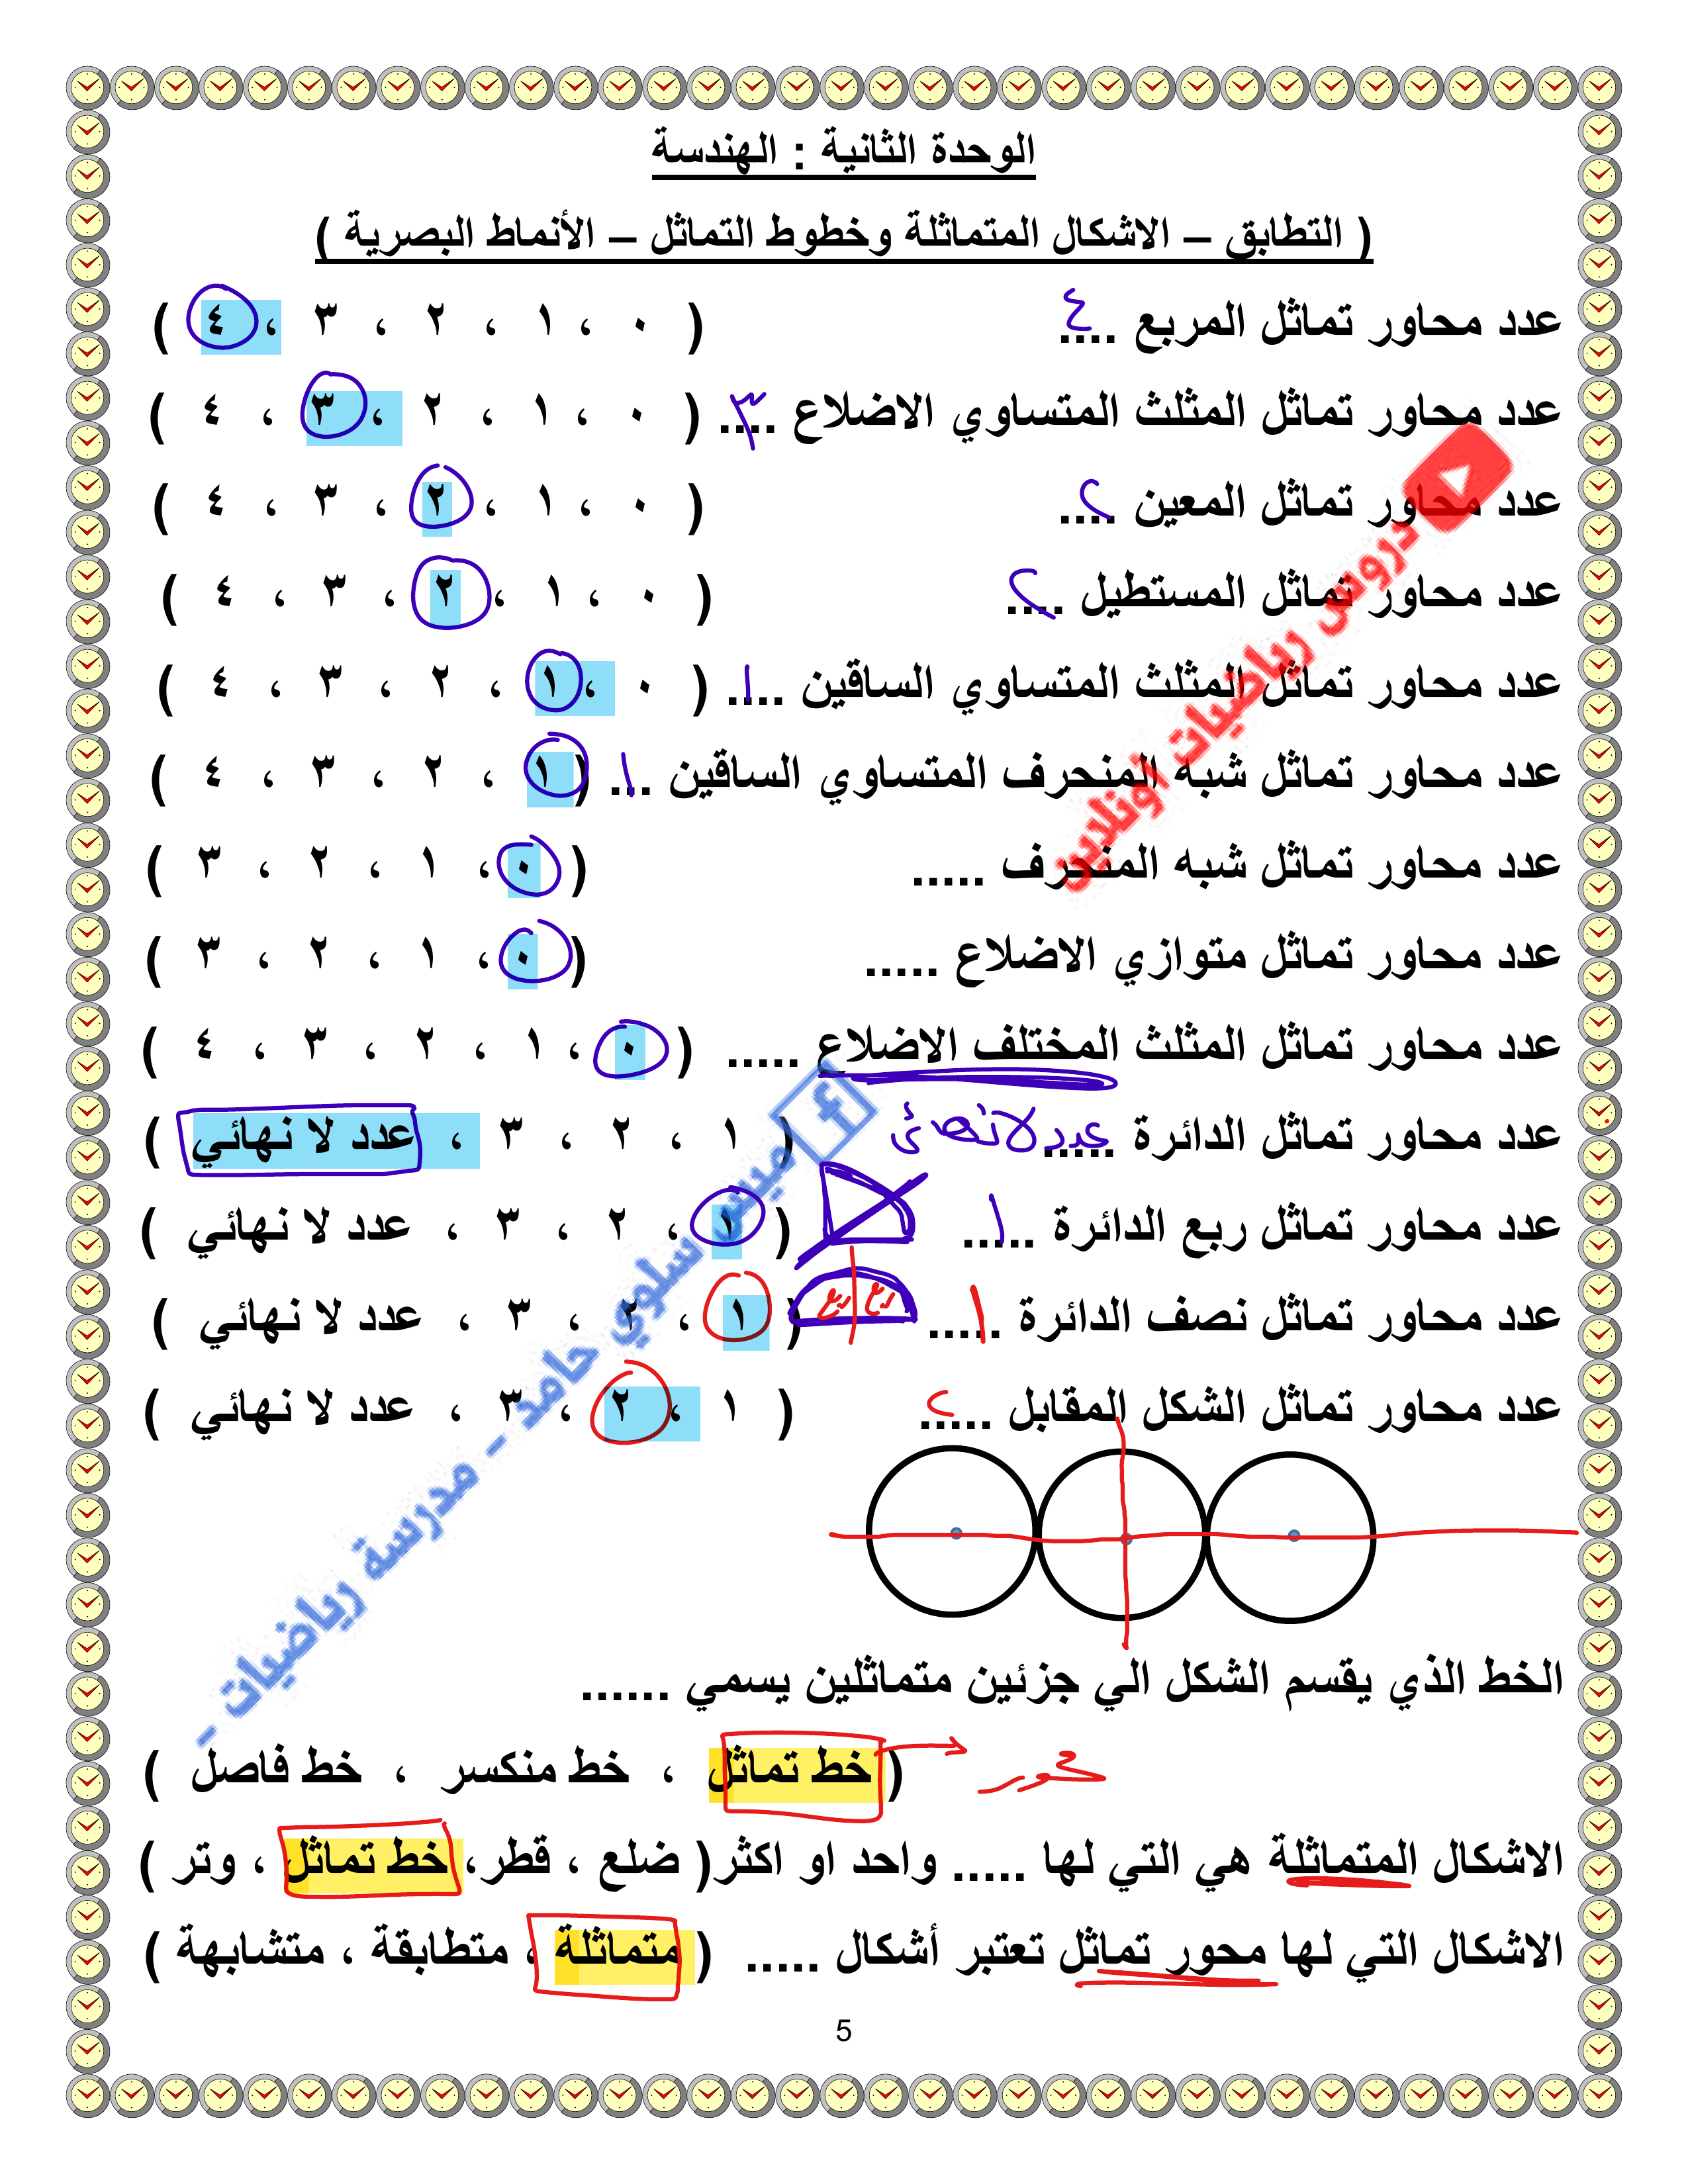 الوحدة الثانية : الهندسة
( التطابق – الاشكال المتماثلة وخطوط التماثل – الأنماط البصرية )
عدد محاور تماثل المربع .... ٤ ( ٠ ، ١ ، ٢ ، ٣ ، ٤ )
عدد محاور تماثل المثلث المتساوي الاضلاع .... ٣ ( ٠ ، ١ ، ٢ ، ٣ ، ٤ )
عدد محاور تماثل المعين .... ٢ ( ٠ ، ١ ، ٢ ، ٣ ، ٤ )
عدد محاور تماثل المستطيل .... ٢ ( ٠ ، ١ ، ٢ ، ٣ ، ٤ )
عدد محاور تماثل المثلث المتساوي الساقين .... ١ ( ٠ ، ١ ، ٢ ، ٣ ، ٤ )
عدد محاور تماثل شبه المنحرف المتساوي الساقين ... ١ ( ١ ، ٢ ، ٣ ، ٤ )
عدد محاور تماثل شبه المنحرف ..... ( ٠ ، ١ ، ٢ ، ٣ )
عدد محاور تماثل متوازي الاضلاع ..... ( ٠ ، ١ ، ٢ ، ٣ )
عدد محاور تماثل المثلث المختلف الاضلاع ..... ( ٠ ، ١ ، ٢ ، ٣ ، ٤ )
عدد محاور تماثل الدائرة ..... عدد لا نهائى ( ١ ، ٢ ، ٣ ، عدد لا نهائي )
عدد محاور تماثل ربع الدائرة ..... ١ ( ١ ، ٢ ، ٣ ، عدد لا نهائي )
عدد محاور تماثل نصف الدائرة ..... ١ ربع ربع ( ١ ، ٢ ، ٣ ، عدد لا نهائي )
عدد محاور تماثل الشكل المقابل ..... ٢ ( ١ ، ٢ ، ٣ ، عدد لا نهائي )
الخط الذي يقسم الشكل الي جزئين متماثلين يسمي ......
محور ( خط تماثل ، خط منكسر ، خط فاصل )
الاشكال المتماثلة هي التي لها ..... واحد او اكثر( ضلع ، قطر، خط تماثل ، وتر )
الاشكال التي لها محور تماثل تعتبر أشكال ..... ( متماثلة ، متطابقة ، متشابهة )
5
دروس رياضيات اونلاين
ميس سلوي حامد - مدرسة رياضيات -